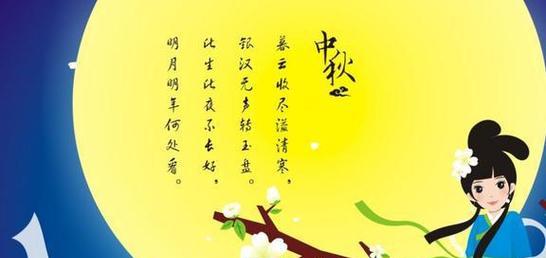 中秋
暮云收尽溢清寒，
银汉无声转玉盘。
此生此夜不长好，
明月明年何处看。